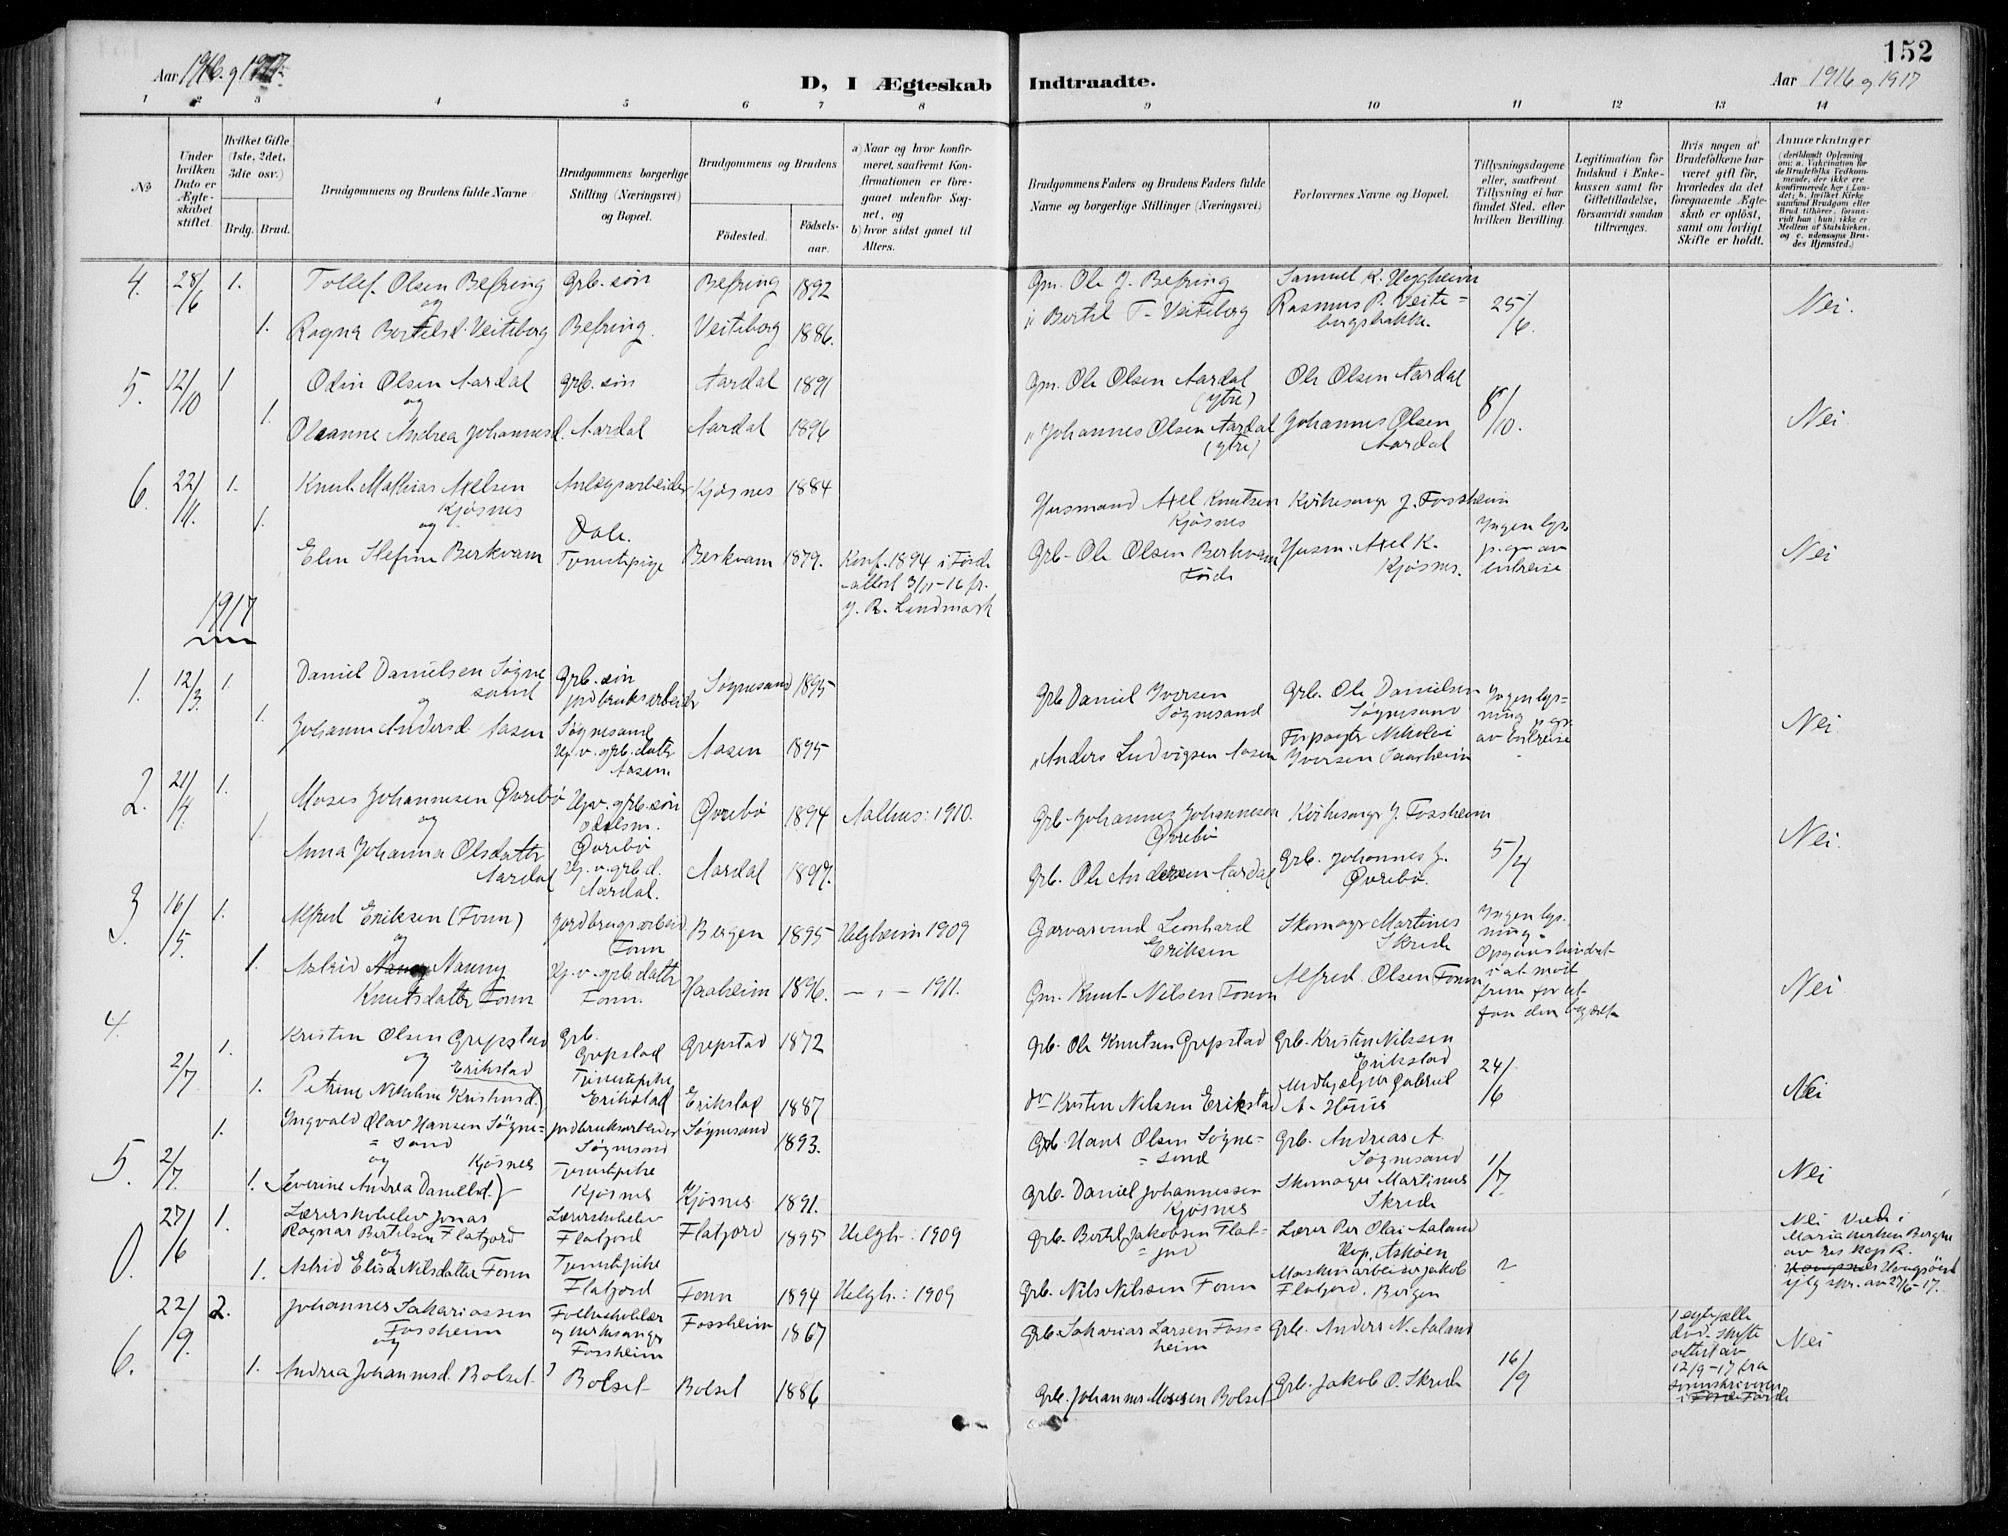 152
Aar 1916 og 1917.
D, I Ægteskab Indtraadte.
Aar 1916 og 1917
1 2 3 4 5 6 7 8 9 10 11 12 13 14
No
Under hvilken Dato er Ægteskabet stiftet.
Hvilket Gifte (1ste, 2det, 3die osv.)
Brdg. Brud.
Brudgommens og Brudens fulde Navne
Brudgommens borgerlige Stilling (Næringsvei) og Bopæl.
Brudgommens og Brudens
Fødested.
Fødselsaar.
a) Naar og hvor konfirmeret, saafremt Konfirmationen er foregaaet udenfor Sognet, og
b) hvor sidst gaaet til Alters.
Brudgommens Faders og Brudens Faders fulde Navne og borgerlige Stillinger (Næringsvei)
Forlovernes Navne og Bopæl.
Tillysningsdagene eller, saafremt Tillysning ei har fundet Sted, efter hvilken Bevilling.
Legitimation for Indskud i Enkekassen samt for Giftetilladelse, forsaavidt saadan tiltrænges.
Hvis nogen af Brudefolkene har været gift før, hvorledes da det foregaaende Ægteskab er opløst, samt om lovligt Skifte er holdt.
Anmærkninger
4. 28/6 1. Tollef Olsen Befring Grb. søn Befring 1892 Gm. Ole J. Befring Samuel K. Hegheim
og
1. Ragna Bertelsd. Veiteberg Befring. Veiteberg 1886. " Bertil T. Veiteberg Rasmus P. Veite= 25/6. Nei.
bergsbakke.
5. 12/10 1 Odin Olsen Aardal grb. søn Aardal 1891 Gm. Ole Olsen Aardal Ole Olsen Aardal
og (ytre) 8/10. Nei
1. Oleanne Andrea Johannesd. Aardal Aardal 1896 " Johannes Olsen Aardal Johannes Olsen
(ytre) Aardal
6. 22/11. 1. Knut Mathias Axelsen Anlægsarbeider Kjøsnes 1884 Husmand Axel Knutsen Kirkesanger J. Fossheim
Kjøsnes Kjøsnes
1. og Dale.
Elen Stefine Berkvam Tjenestepige Berkvam 1879. Konf. 1894 i Førde Grb. Ole Olsen Berkvam Husm. Axel K. Ingen lys. p. gr. av utreise Nei
attest 3/11-16 fr. Førde Kjøsnes.
J. R. Landmark
1917
1. 12/3. 1. Daniel Danielsen Søgne Grb. søn Søgnesand 1895 Grb Daniel Iversen Grb. Ole Danielsen Ingen lys=
sand jordbruksarbeider Søgnesand Søgnesand ning p. gr.
og
1. Johanne Andersd. Aasen Søgnesand Aasen 1895 " Anders Ludvigsen Aasen Forpagter Nikolai av utreise Nei.
Hj. v. grb. datter Iversen Aarsheim
Aasen.
2. 21/4. 1. Moses Johannesen Øvrebø Hj. v. grb. søn Øvrebø 1894 Aalhus: 1910. Grb. Johannes Johannesen Kirkesanger J. Fossheim
og odelsm. Øvrebø
1. Anna Johanna Olsdatter Øvrebø Aardal 1897. Grb. Ole Andersen Aardal Grb. Johannes J. 5/4 Nei.
Aardal Hj. v. grb. d. Øvrebø.
Aardal.
3. 16/5. 1. Alfred Eriksen (Fonn) Jordbrugsarbeid Bergen 1895 Helgheim 1909 Garversvend Leonhard Skomager Martinus Ingen lys.
og Fonn Eriksen Skrede ning
1. Astrid Nanny Hj. v. grb datter Haaheim 1896. — " — 1911. Gm. Knut Nilsen Fonn Alfred Olsen Fonn Nei
Knutsdatter Fonn Fonn.
4. 2/7 1. Kristen Olsen Grepstad Grb. Grepstad Grepstad 1872 Grb. Ole Knutsen Grepstad Grb. Kristen Nilssen
og Erikstad Erikstad 24/6
1. Petrine Nikoline Kristensd.) Tjenestepike Erikstad Erikstad 1887 do Kristen Nilssen Erikstad Medhjælper Gabriel Nei
A. Huus
5. 2/7. 1. Ingvald Olav Hansen Søgne= jordbruksarbeider Søgnesand 1893. Grb. Hans Olsen Søgne= Grb. Andreas A.
= sand Søgnesand = sand Søgnesand
og Kjøsnes Tjenestepike 1/7 Nei
1. Severine Andrea Danielsd.) Kjøsnes Kjøsnes 1891. Grb. Daniel Johannessen Skomager Martinus
Kjøsnes Skrede
0. 27/6 1. Lærerskoleelev Jonas Lærerskoleelev
Ragnar Bertelsen Flatjord Flatjord Flatjord 1895 Helgh.: 1909 Grb. Bertel Jakobsen Flat= Lærer Per Olai Aaland Nei Viede i
og = jord Hop, Askøen Mariakirken Bergen
1. Astrid Elisa Nilsdatter Fonn Tjenestepike av res. kap. R.
Flatjord Fonn 1894 Helgh.: 1909 Grb. Nils Nilssen Fonn Maskinarbeider Jakob ? Haugsøen
Flatjord. Bergen iflg. skr. av 27/6-17.
6. 22/9. 2. Johannes Sakariassen Folkeskolelær Fossheim 1867 Grb. Sakarias Larsen Foss= Grb. Anders N. Aaland 1 egtefælle
Fossheim og kirkesanger heim død. Skifte Nei
og Fossheim attest av
1. Andrea Johannesd. Bolset ? Bolset Bolset 1886 Grb. Johannes Mosesen Bolset Grb. Jakob O. Skrede 16/9 12/9-17 fra
Sorenskriveren
i Førde